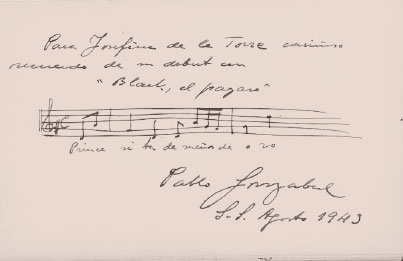 Para Josefina de la Torre cariñoso
recuerdo de su debut con
"Black, el payaso"
Prince si ha de de o ro
Pablo Sorozabal
S.S. Agosto 1943